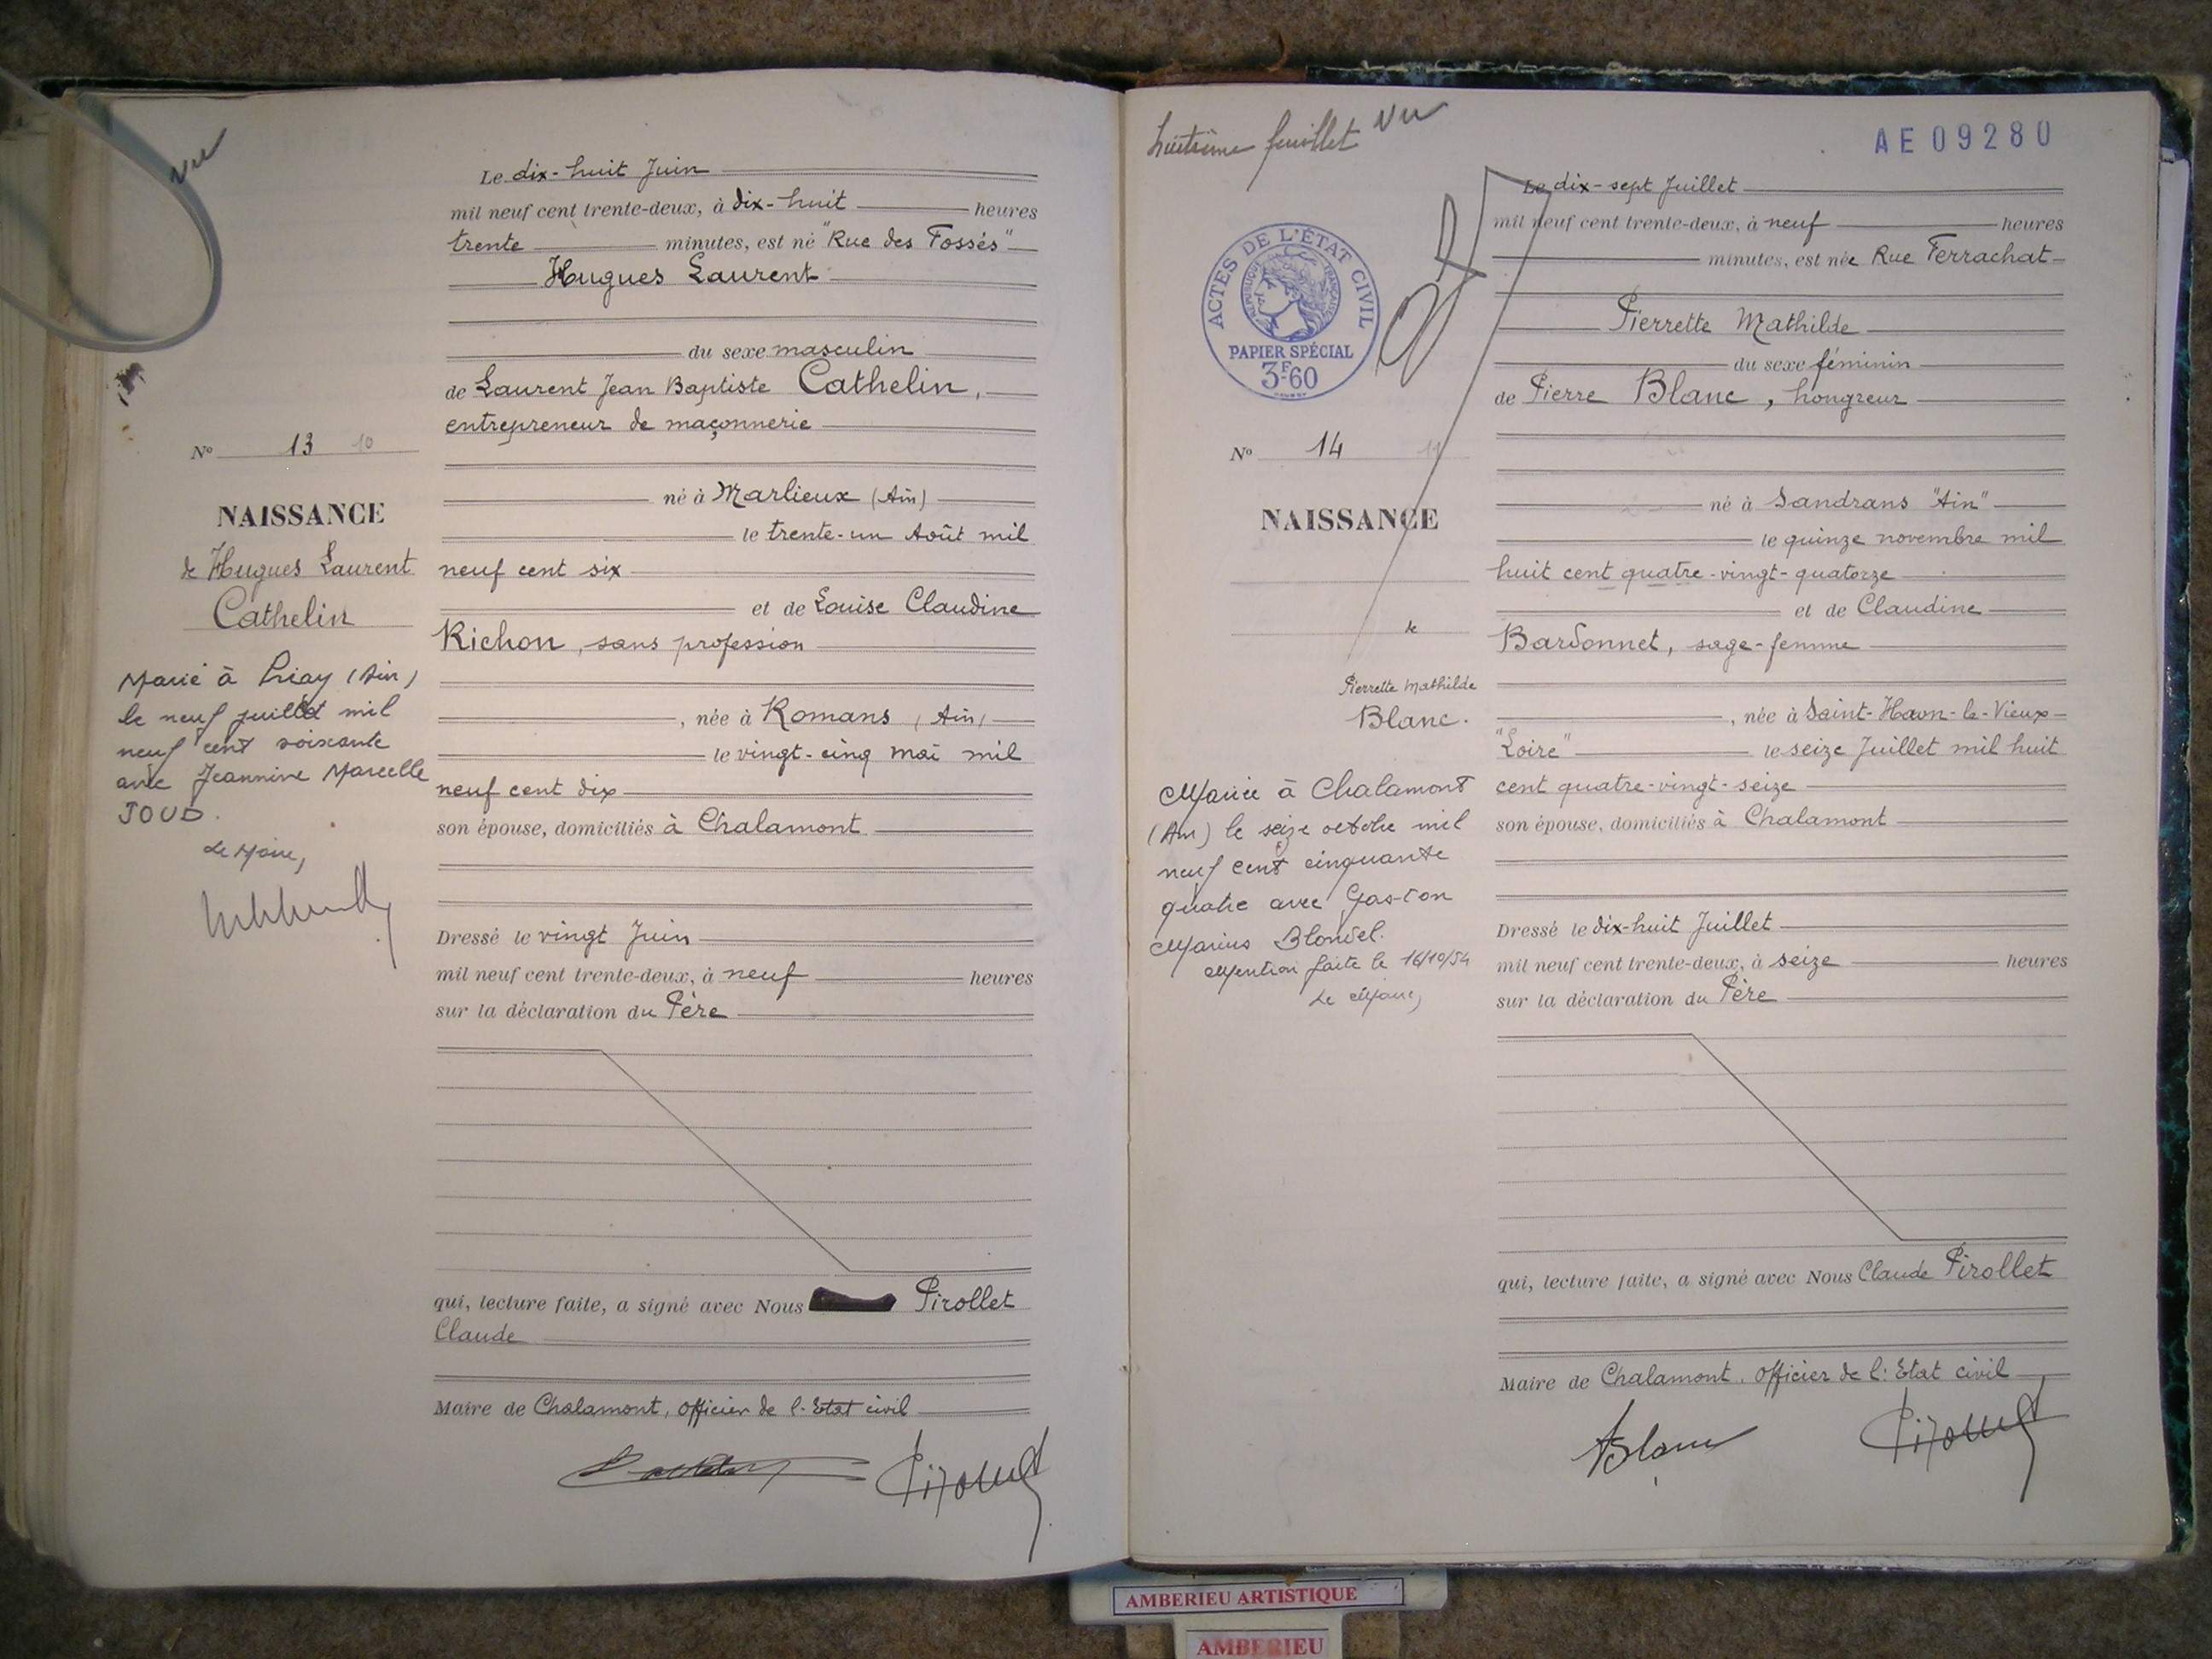 vu
Le dix-huit Juin
mil neuf cent trente-deux, à dix-huit heures
trente minutes, est né "Rue des Fossés"
Hugues Laurent
du sexe masculin
de Laurent Jean Baptiste Cathelin,
entrepreneur de maçonnerie
né à Marlieux (Ain)
le trente-un Août mil
neuf cent six
et de Louise Claudine
Richon, sans profession
, née à Romans (Ain)
le vingt-cinq mai mil
neuf cent dix
son épouse, domiciliés à Chalamont
Dressé le vingt Juin
mil neuf cent trente-deux, à neuf heures
sur la déclaration du Père
qui, lecture faite, a signé avec Nous Pirollet
Claude
Maire de Chalamont, officier de l'Etat civil
Nº 13 10
NAISSANCE
de Hugues Laurent
Cathelin
Marié à Priay (Ain)
le neuf juillet mil
neuf cent soixante
avec Jeannine Marcelle
JOUD.
Le Maire,
huitième feuillet vu
AE09280
ACTES DE L'ÉTAT CIVIL
RÉPUBLIQUE FRANÇAISE
PAPIER SPÉCIAL
3F60
Le dix-sept Juillet
mil neuf cent trente-deux, à neuf heures
minutes, est née Rue Terrachat
Pierrette Mathilde
du sexe féminin
de Pierre Blanc, hongreur
né à Sandrans "Ain"
le quinze novembre mil
huit cent quatre-vingt-quatorze
et de Claudine
Bardonnet, sage-femme
, née à Saint-Haon-le-Vieux
"Loire" le seize Juillet mil huit
cent quatre-vingt-seize
son épouse, domiciliés à Chalamont
Dressé le dix-huit Juillet
mil neuf cent trente-deux, à seize heures
sur la déclaration du Père
qui, lecture faite, a signé avec Nous Claude Pirollet
Maire de Chalamont. officier de l'Etat civil
Blanc Pirollet
Nº 14 11
NAISSANCE
de
Pierrette Mathilde
Blanc.
Mariée à Chalamont
(Ain) le seize octobre mil
neuf cent cinquante
quatre avec Gaston
Marius Blondel.
Mention faite le 16/10/54
Le Maire,
AMBERIEU ARTISTIQUE
AMBERIEU